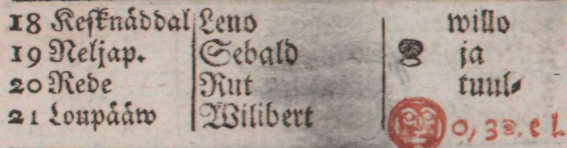 18 Keſknäddal Leno willo
19 Neljap. Sebald ja
20 Rede Rut tuul⸗
21 Loupääw Wilibert 0, 3 e l.